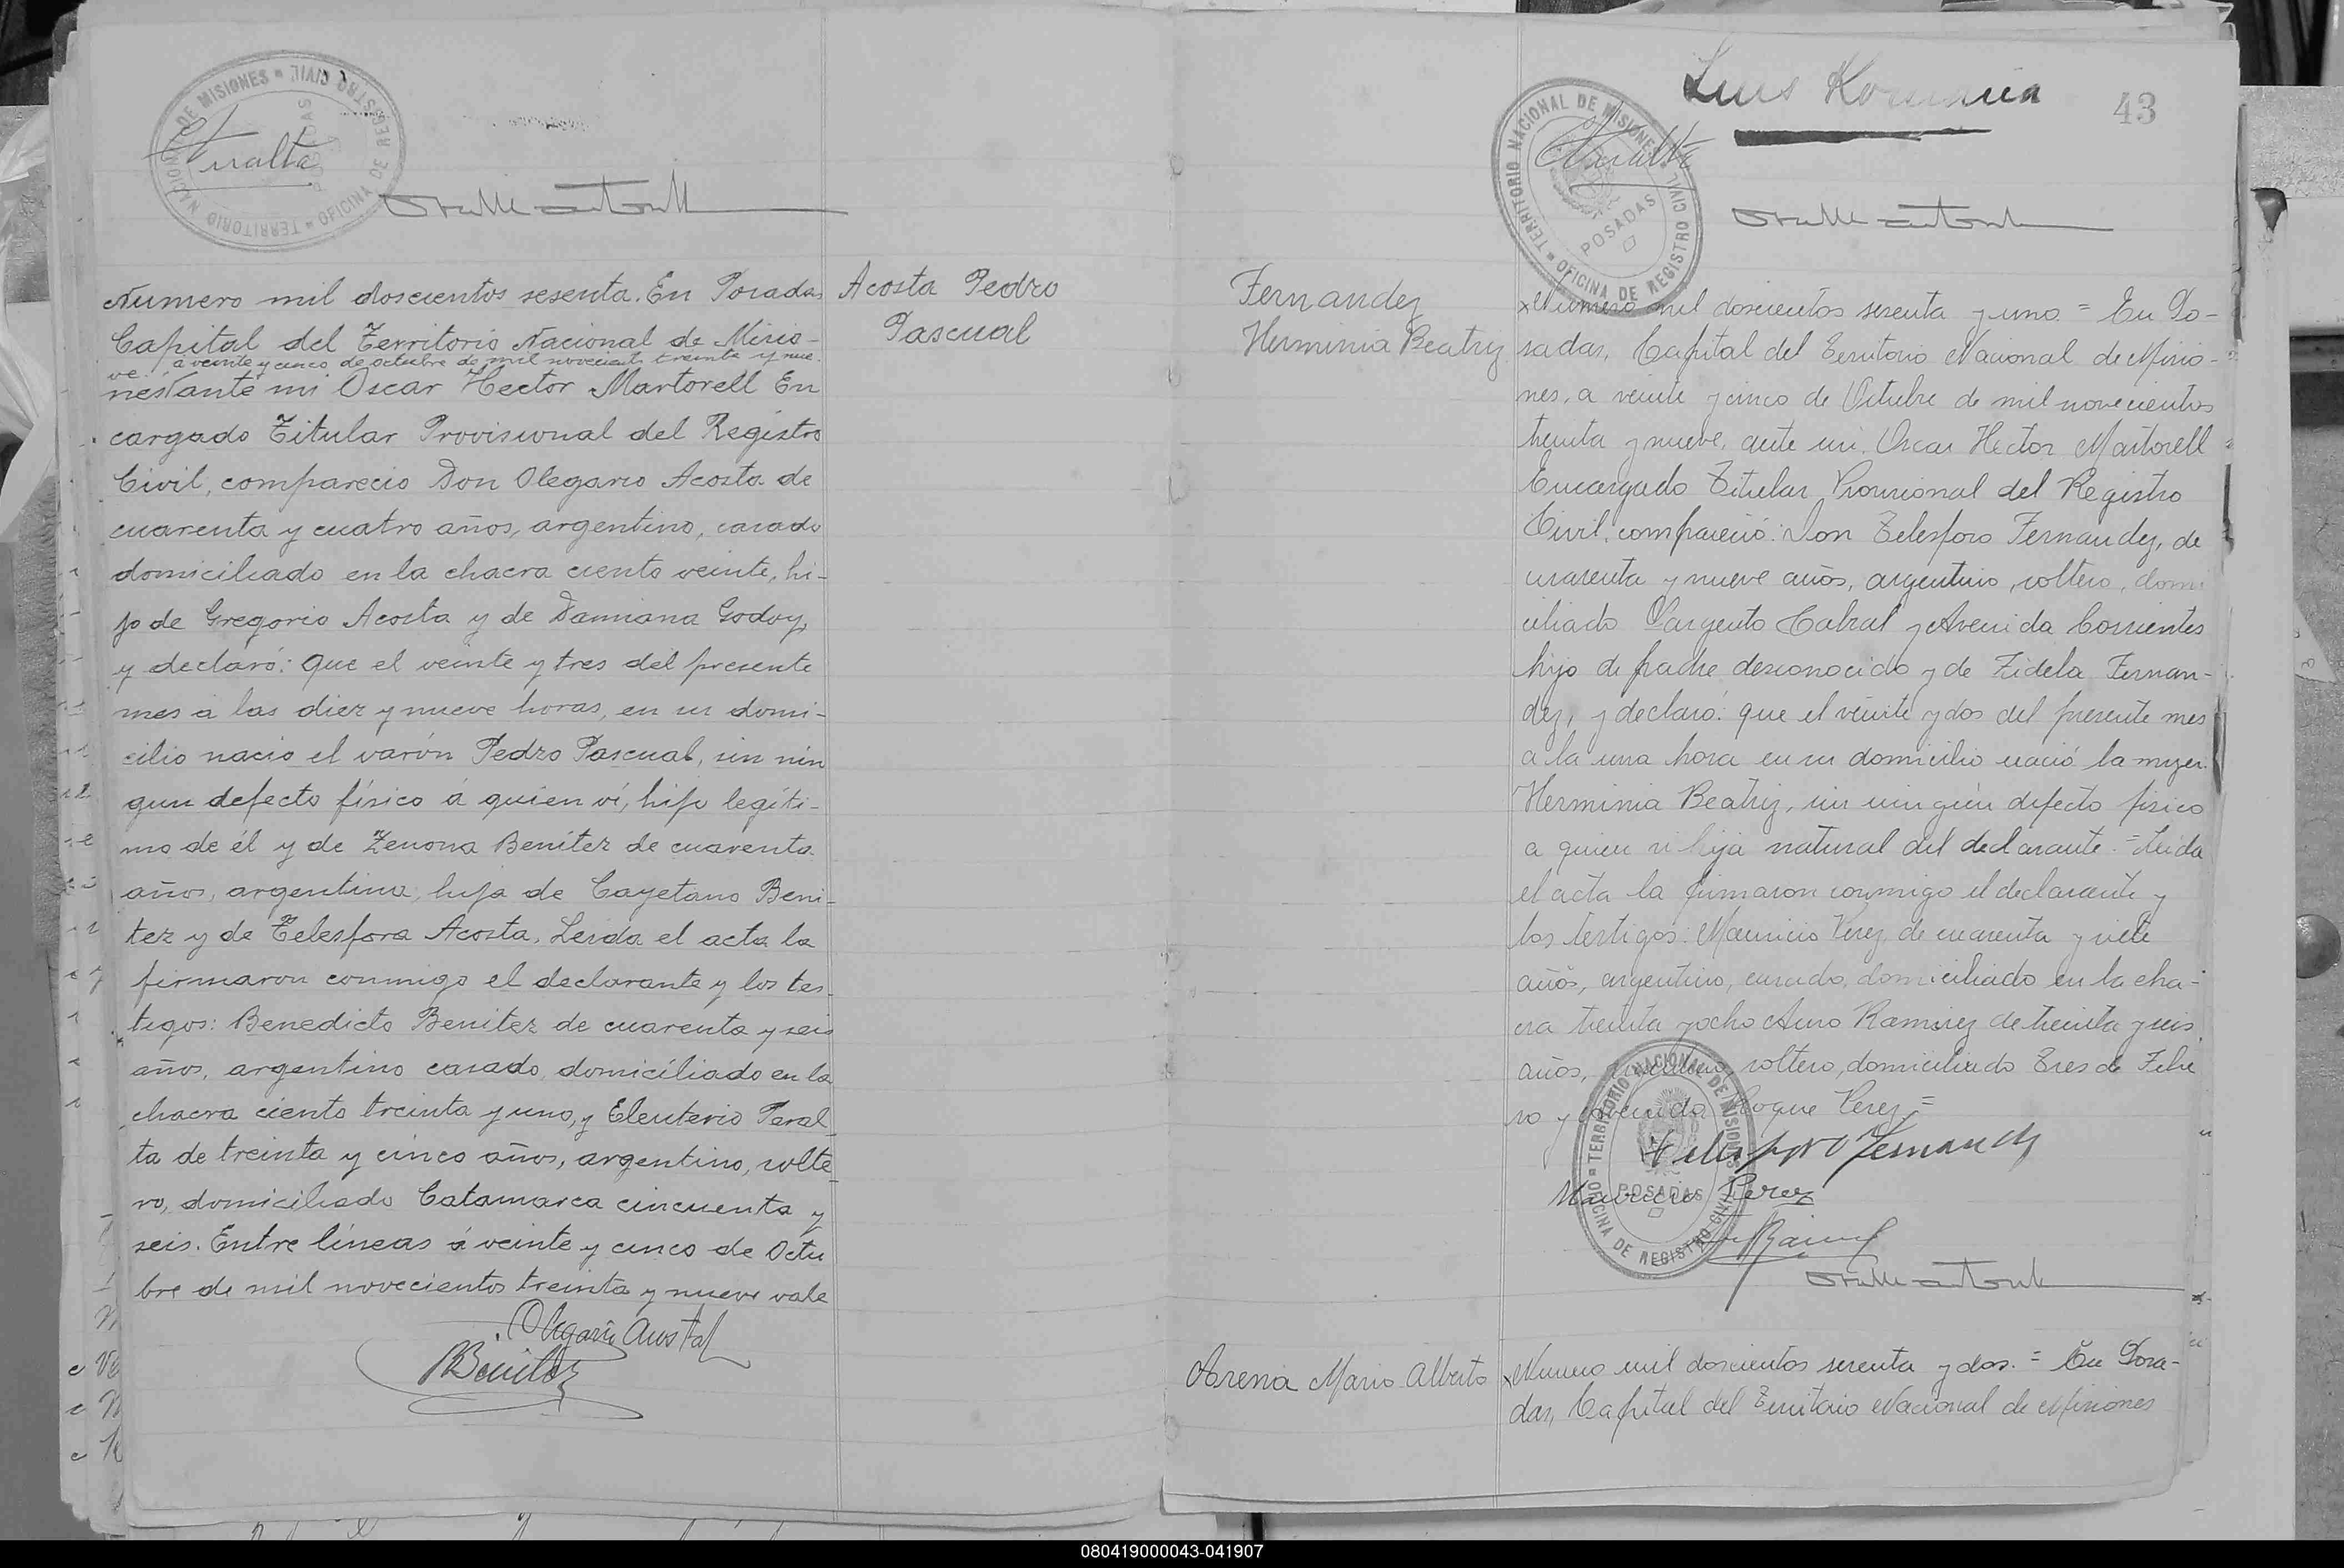 TERRITORIO NACIONAL DE MISIONES OFICINA DE REGISTRO CIVIL POSADAS
Acosta Pedro
Pascual
Numero mil doscientos sesenta. En Posadas
Capital del Territorio Nacional de Misio-
a veinte y cinco de octubre de mil novecientos treinta y nue
ve
nes ante mi Oscar Hector Martorell En
cargado Titular Provisional del Registro
Civil, comparecio Don Olegario Acosta de
cuarenta y cuatro años, argentino, casado
domiciliado en la chacra ciento veinte, hi-
jo de Gregorio Acosta y de Damiana Godoy,
y declaró: que el veinte y tres del presente
mes a las diez y nueve horas, en su domi-
cilio nacio el varón Pedro Pascual, sin nin
gun defecto físico á quien ví, hijo legíti-
mo de él y de Zenona Benítez de cuarenta
años, argentina, hija de Cayetano Beni-
tez y de Telesfora Acosta. Leida el acta la
firmaron conmigo el declarante y los tes-
tigos: Benedicto Benitez de cuarenta y seis
años, argentino casado, domiciliado en la
chacra ciento treinta y uno, y Eleuterio Peral
ta de treinta y cinco años, argentino, solte
ro, domiciliado Catamarca cincuenta y
seis. Entre líneas á veinte y cinco de Octu
bre de mil novecientos treinta y nueve vale
Olegario Acosta
B Benitez
Luis
43
TERRITORIO NACIONAL DE MISIONES OFICINA DE REGISTRO CIVIL POSADAS
Fernandez
Herminia Beatriz
Numero mil doscientos sesenta y uno = En Po-
sadas, Capital del Territorio Nacional de Misio-
nes, a veinte y cinco de Octubre de mil novecientos
treinta y nueve, ante mi. Oscar Hector Martorell
Encargado Titular Provisional del Registro
Civil, compareció: Don Telesforo Fernandez, de
cuarenta y nueve años, argentino, soltero, domi
ciliado Sargento Cabral y Avenida Corrientes
hijo de padre desconocido y de Fidela Fernan-
dez, y declaró: que el veinte y dos del presente mes
a la una hora en su domicilio nació la mujer
Herminia Beatriz, sin ningún defecto fisico
a quien vi hija natural del declarante = Leida
el acta la firmaron conmigo el declarante y
los testigos: Mauricio Perez, de cuarenta y siete
años, argentino, casado, domiciliado en la cha-
cra treinta y ocho Ramirez de treinta y seis
años, soltero, domiciliado Tres de Febre
ro y Avenida Roque Perez =
TERRITORIO NACIONAL DE MISIONES OFICINA DE REGISTRO CIVIL POSADAS
Telesforo Fernandez
Mauricio Perez
Arena Mario Alberto
Numero mil doscientos sesenta y dos. = En Posa-
das, Capital del Territorio Nacional de Misiones
080419000043-041907